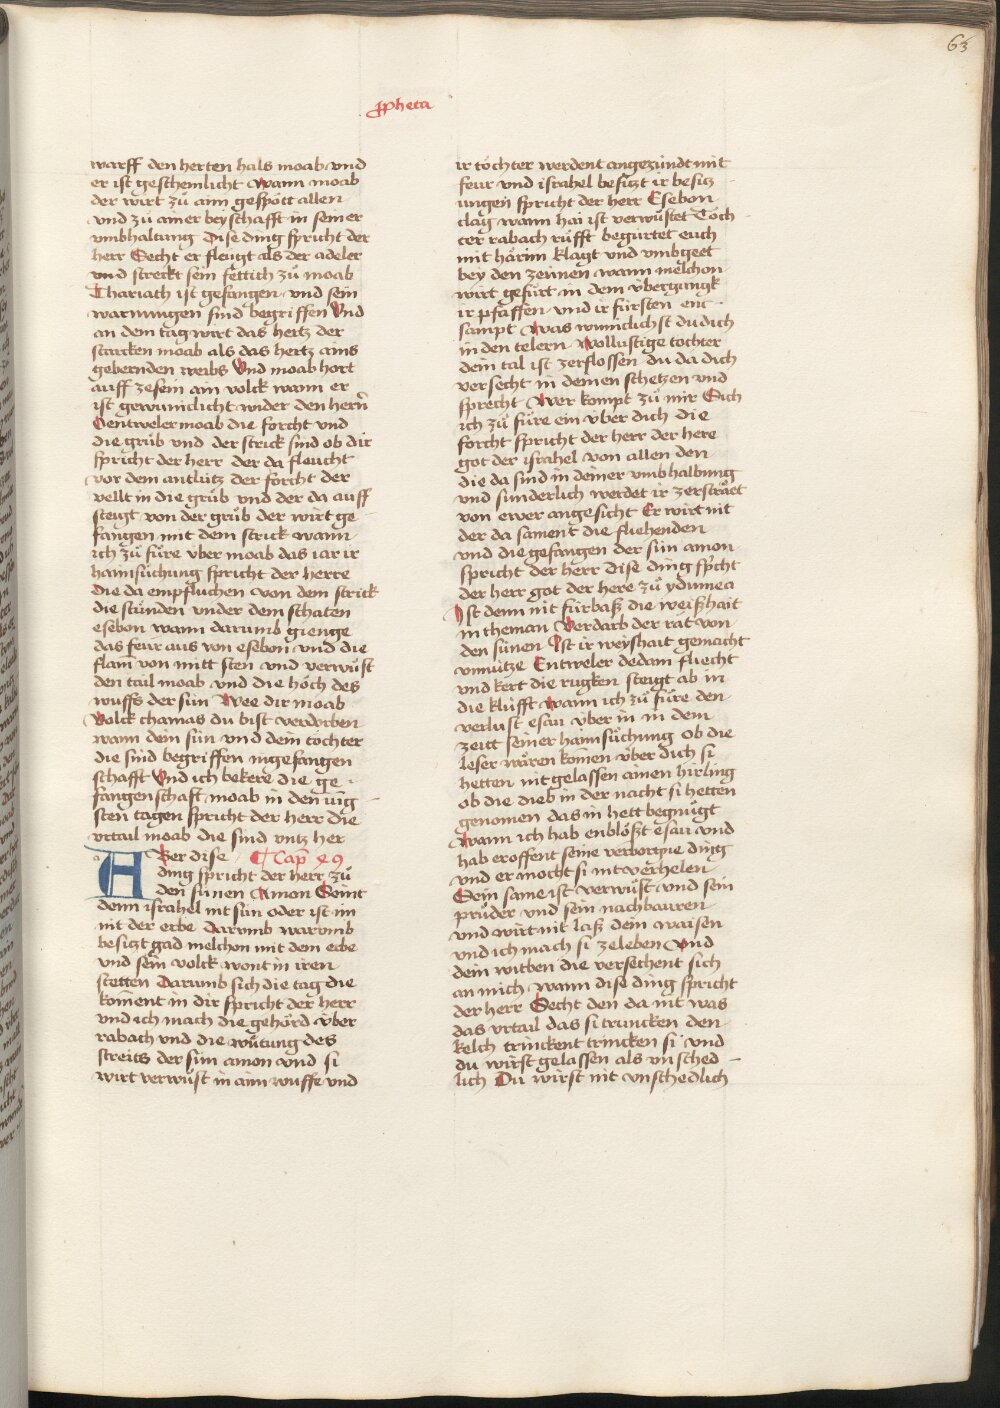 63
ꝓpheta
warff den herten hals moab vnd
er ist geschemlicht wann moab
der wirt zů aim gespött allen
vnd zů ainer beyschafft in seiner
vmbhaltung Dise ding spricht der
herr Secht er fleugt als der adeler
vnd streckt sein fettich zů moab
Chariath ist gefangen vnd sein
warnungen sind begriffen Vnd
an dem tag wirt das hertz der
starcken moab als das hertz ains
gebernden weibs Vnd moab hort
auff ze sein ain volck wann er
ist gewuniclicht wider den hern̄
Dentweler moab die forcht vnd
die grůb vnd der strick sind ob dir
spricht der herr der da fleucht
vor dem antlütz der forcht der
vellt in die grůb vnd der da auff
steigt von der grůb der wirt ge
fangen mit dem strick wann
ich zů fůre vber moab das iar ir
haimsüchung spricht der herre
Die da empfluchen von dem strick
die stůnden vnder dem schaten
esebon wann darumb gienge
das feur aus von esebon vnd die
flam̄ von mitt sten vnd verwůst
den tail moab vnd die höch des
wuffs der sün Wee dir moab
Volck chamas du bist verdorben
wann dein sün vnd dein tochter
die sind begriffen in gefangen
schafft Vnd ich bekere die ge
fangenschaft moab in den iüg
sten tagen spricht der herr die
vrtail moab die sind vntz her
ABer dise ¶ Cap̄ 49
ding spricht der herr zů
den sünen Amon Seint
denn israhel nit sün oder ist im
nit der erbe Darumb warumb
besitzt gad melchon mit dem erbe
vnd sein volck wont in iren
stetten Darumb sich die tag die
koment in dir spricht der herr
vnd ich mach die gehörd vber
rabach vnd die wůtung des
streits der sün amon vnd si
wirt verwüst in ainn wuffe vnd
ir töchter werdent angezündt mit
feur vnd israhel besitzt ir besitz
ungen spricht der herr Esebon
clag wann hai ist verwüstet Töch
ter rabach růfft begürtet euch
mit härim klagt vnd vmbgeet
bey den zeinnen wann melchon
wirt gefürt in dem vbergangk
ir pfaffen vnd ir fürsten ent
sampt Was wuniclichst du dich
in den telern Wollustige tochter
dein tal ist zerflossen du da dich
versecht in deinen schetzen vnd
sprecht Wer kompt zů mir Sich
ich zů fůre ein vber dich die
forcht spricht der herr der here
got der israhel von allen den
die da sind in deiner vmbhalbung
vnd sunderlich werdet ir zersträet
von ewer angesicht Er wirt nit
der da sament die fluehenden
vnd die gefangen der sün amon
spricht der herr Dise ding spͥcht
der herr got der here zů ydumea
Ist denn nit fürbaß die weißhait
in theman Verdarb der rat von
den sünen Ist ir weyshait gemacht
vnnütze Entweler dedam fliecht
vnd kert die rugken steigt ab in
die klüfft wann ich zů fůre den
verlust esau vber in in dem
zeitt seiner haimsüchung ob die
leser wären komen vber dich si
hetten nit gelassen ainen hirling
ob die dieb in der nacht si hetten
genomen das in hett begnůgt
Wann ich hab enblößt esau vnd
hab eroffent seine verborgne ding
vnd er mocht si nit verhelen
Sein same ist verwůst vnd sein
průder vnd sein nachbauren
vnd wirt nit laß dein waisen
vnd ich mach si ze leben Vnd
dein witben die versechent sich
an mich wann dise ding spricht
der herr Secht den da nit was
das vrtail das si truncken den
kelch trinckent trincken si vnd
du wirst gelassen als vnsched
lich Du wirst nit vnschedlich